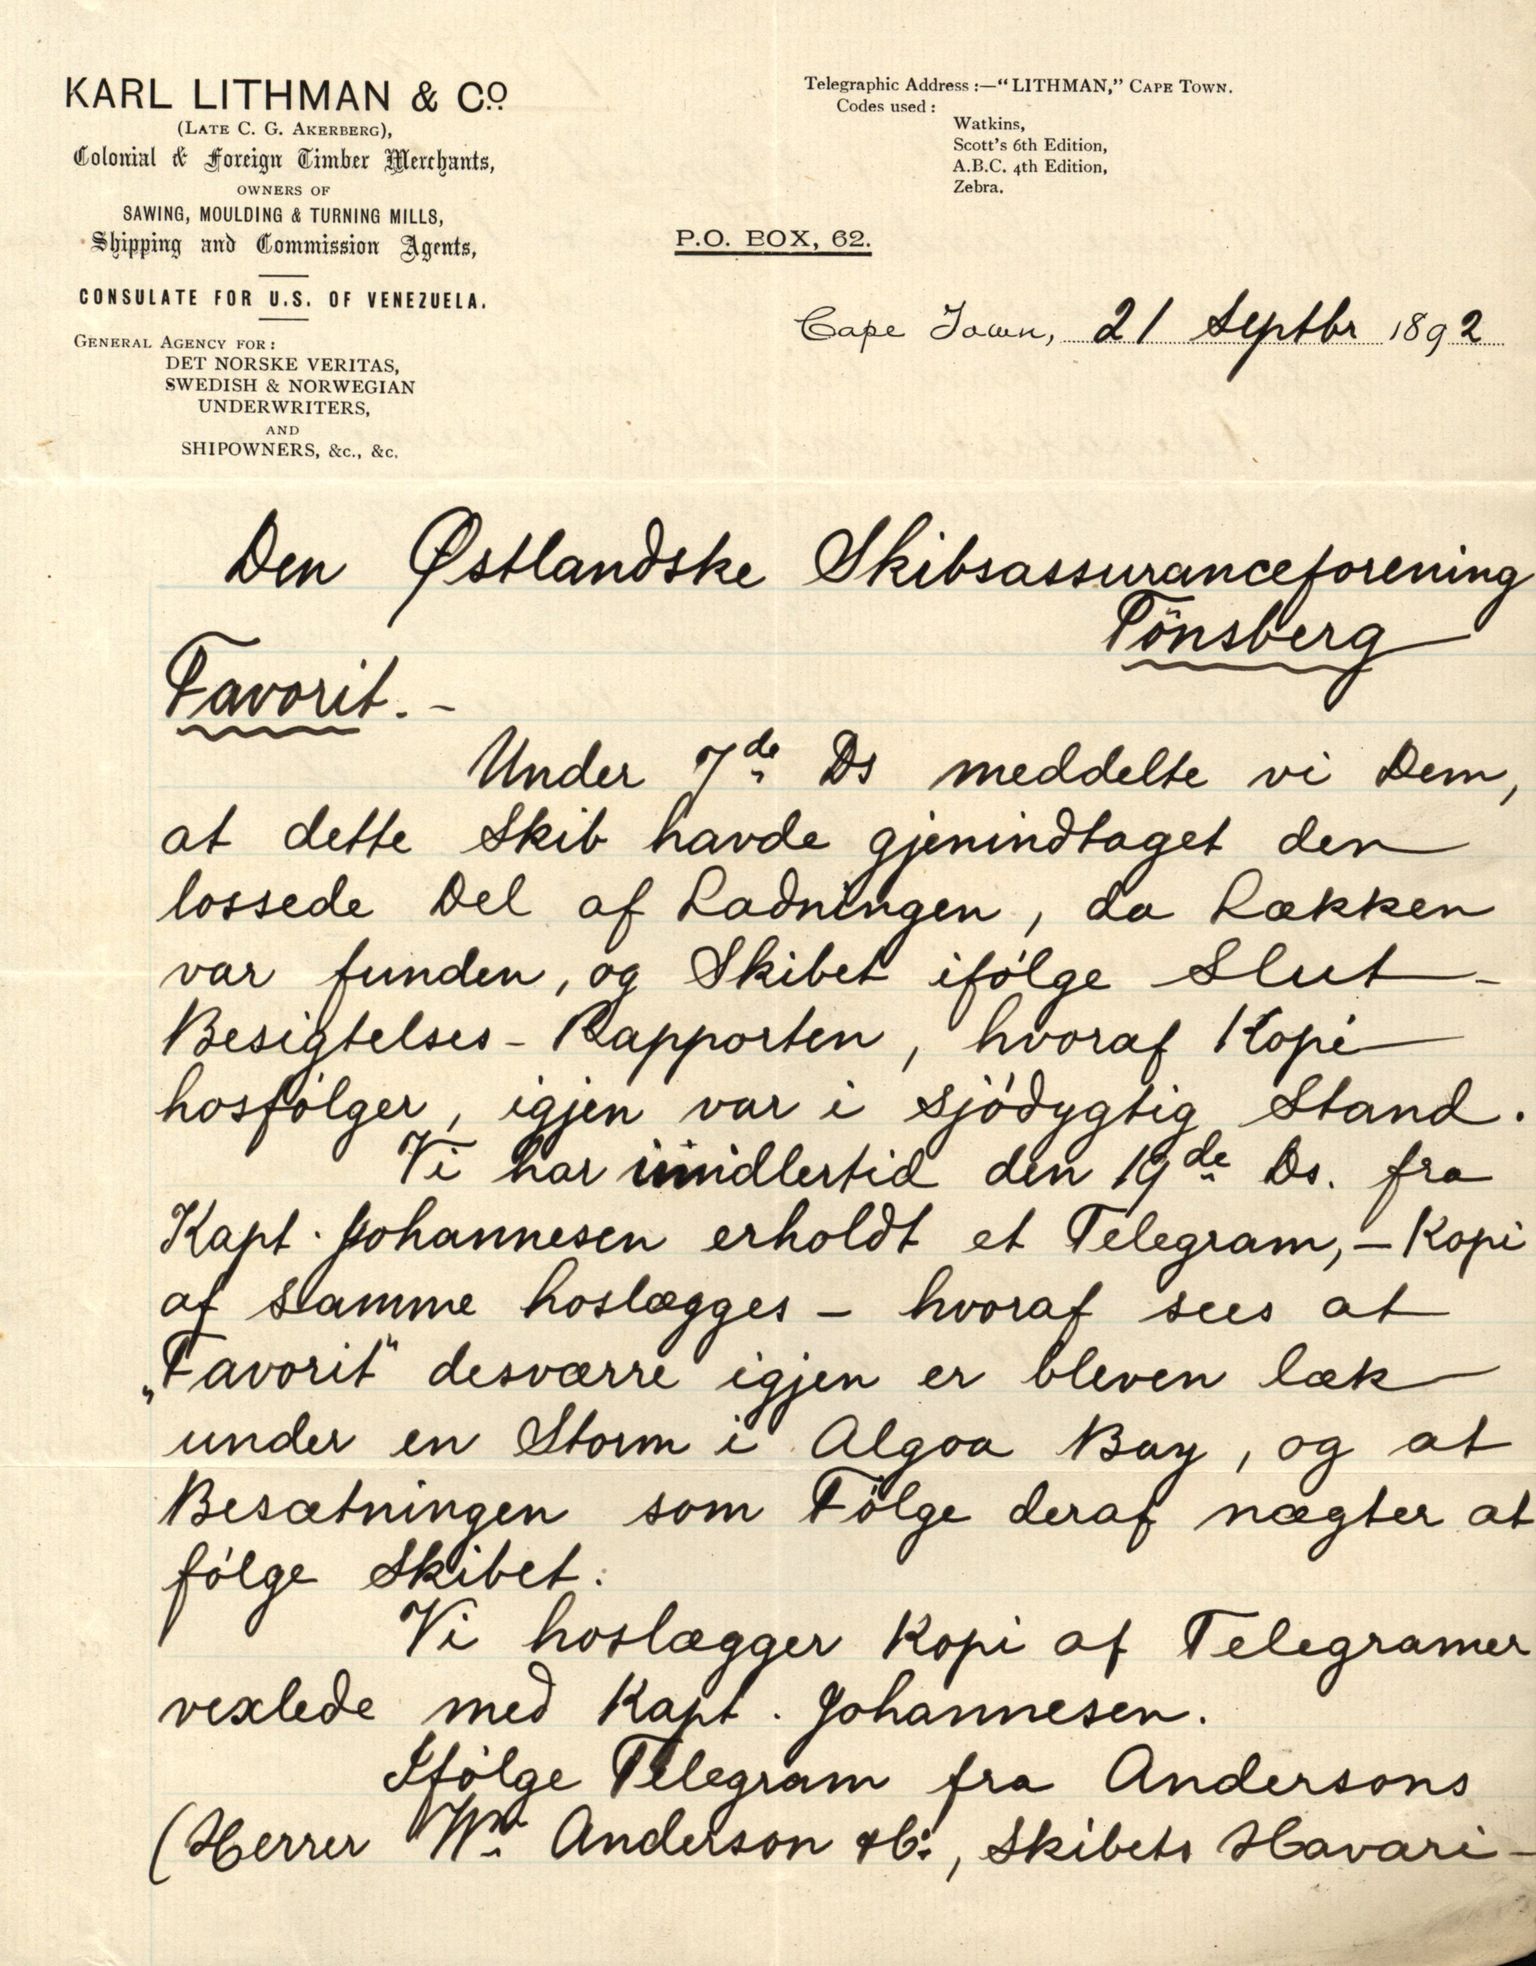 KARL LITHMAN & Co.
(LATE C. G. AKERBERG),
Colonial & Foreign Timber Merchants,
OWNERS OF
SAWING, MOULDING & TURNING MILLS,
Shipping and Commission Agents,
CONSULATE FOR U.S. OF VENEZUELA.
GENERAL AGENCY FOR:
DET NORSKE VERITAS,
SWEDISH & NORWEGIAN
UNDERWRITERS,
AND
SHIPOWNERS, &c., &c.
Telegraphic Address :—"LITHMAN," CAPE TOWN.
Codes used :
Watkins,
Scott's 6th Edition,
A.B.C. 4th Edition,
Zebra.
P.O. BOX, 62.
Cape Town, 21 Septbr 1892
Den Østlandske Skibsassuranceforening
Tönsberg
Favorit. -
Under 7de Ds meddelte vi Dem,
at dette Skib havde gjenindtaget den
lossede Del af Ladningen, da Lækken
var funden, og Skibet ifólge Slut-
Besigtelses-Rapporten, hvoraf Kopi
hosfólger, igjen var i sjódygtig Stand.
Vi har imidlertid den 19de Ds. fra
Kapt. Johannesen erholdt et Telegram, - Kopi
af samme hoslægges - hvoraf sees at
„Favorit" desværre igjen er bleven læk
under en Storm i Algoa Bay, og at
Besætningen som Fólge deraf nægter at
fólge Skibet.
Vi hoslægger Kopi af Telegramer
vexlede med Kapt. Johannesen.
Ifólge Telegram fra Andersons
(Herrer Wm. Anderson & Co., Skibets Havari-